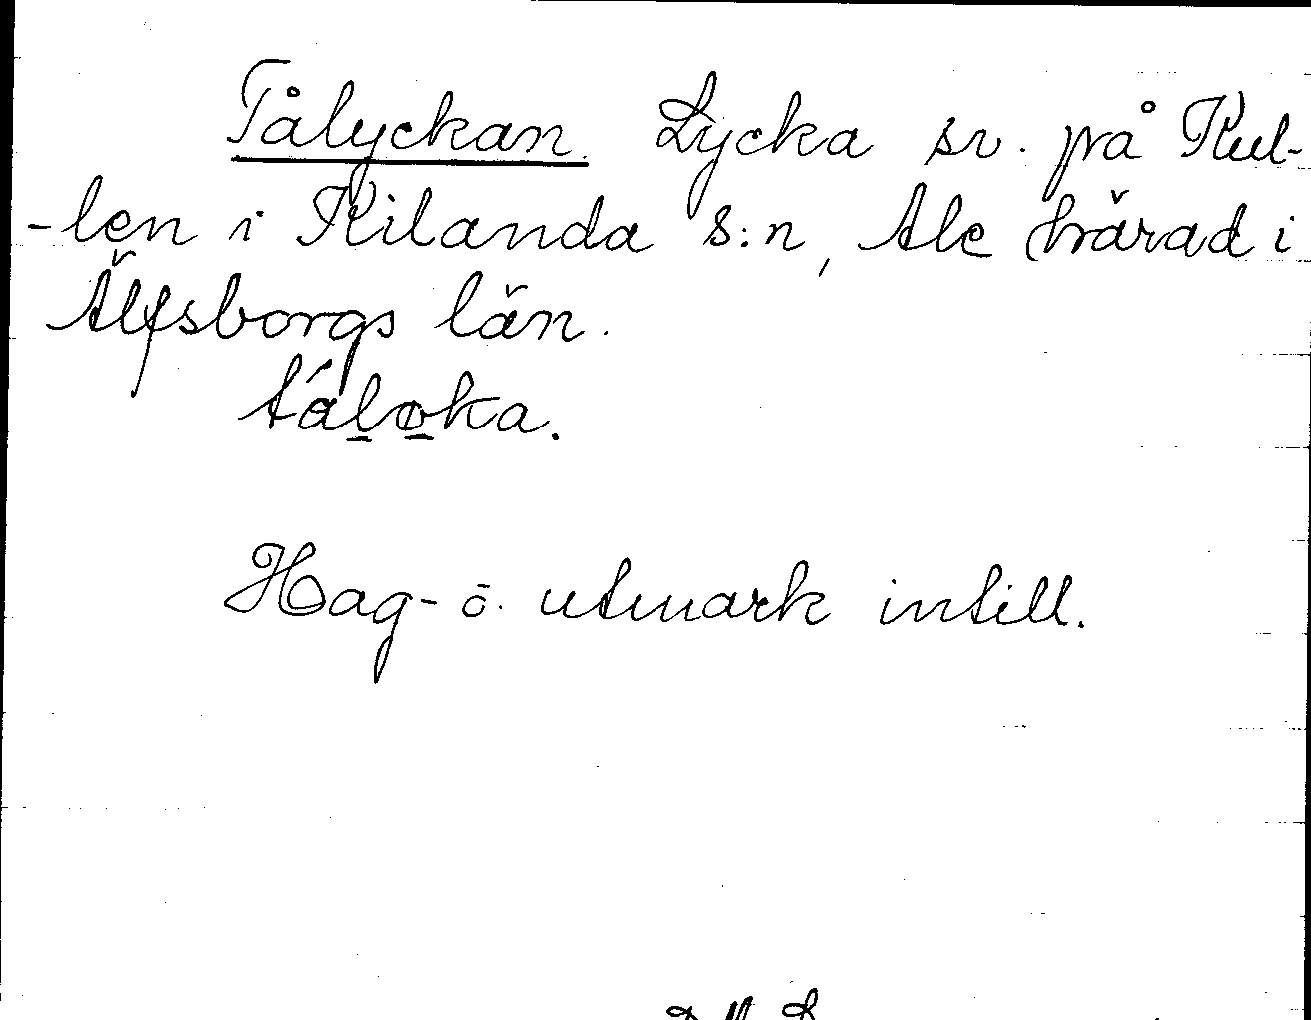 Tålyckan. Lycka sv. på Kul-
-len i Kilanda s:n, Ale härad i
Älfsborgs län.
tǻl̲ø̲ka.
Hag- o. utmark intill.